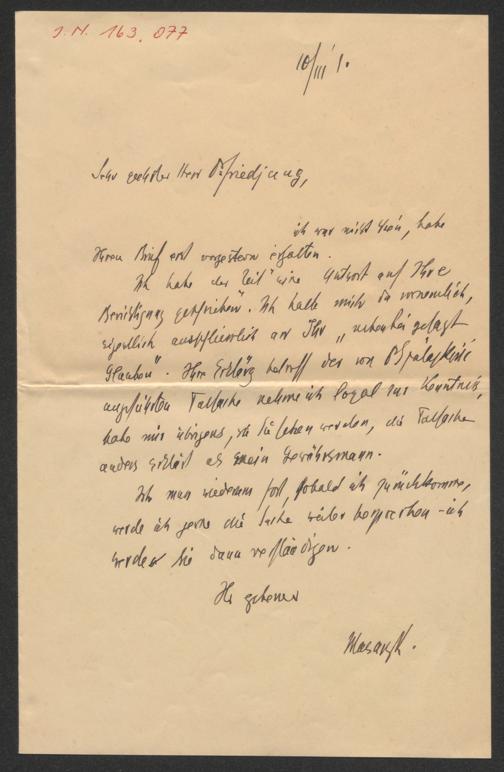 I.N. 163.077
10/III 1.
Sehr geehrter Herr Dr. Friedjung,
ich war nicht hier, habe
Ihren Brief erst vorgestern erhalten.
Ich habe der "Zeit" eine Antwort auf Ihre
Berichtigung geschrieben. Ich halte mich da vornemlich,
eigentlich ausschliesslich an Ihr "nebenbei gesagt
Glauben". Ihre Erklärg betreff der von
angeführten Tatsache nehme ich loyal zur Kenntnis,
habe mir übrigens, wie Sie sehen werden, die Tatsache
anders erklärt als mein Gewährsmann.
Ich muss wiederum fort, sobald ich zurückkomme,
werde ich gerne die Sache weiter besprechen - ich
werde Sie dann verständigen.
Ihr ergebener
Masaryk.